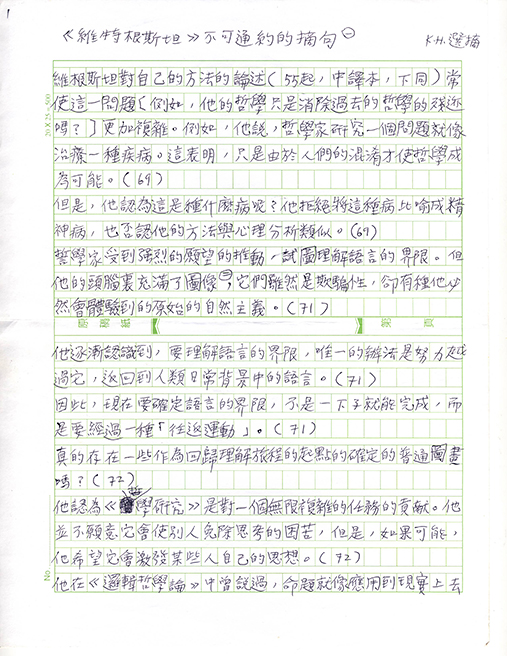 1
《維特根斯坦》不可通約的摘句㊀
K.H.選摘
維根斯坦對自己的方法的論述(55起,中譯本,下同)常
使這一問題〔例如,他的哲學只是消除過去的哲學的殘跡
嗎?〕更加複雜。例如,他說,哲學家研究一個問題就像
治療一種疾病。這表明,只是由於人們的混淆才使哲學成
為可能。(69)
但是,他認為這是種什麼病呢?他拒絕將這種病比喻成精
神病,也否認他的方法與心理分析類似。(69)
哲學家受到強烈的願望的推動,試圖理解語言的界限。但
他的頭腦裏充滿了圖像㊁,它們雖然是欺騙性,卻有種他必
然會體驗到的原始的自然主義。(71)
原稿紙【 】第 頁
他逐漸認識到,要理解語言的界限,唯一的辦法是努力越
過它,返回到人類日常背景中的語言。(71)
因此,現在要確定語言的界限,不是一下子就能完成,而
是要經過一種「往返運動」。(71)
真的存在一些作為回歸理解旅程的起點的確定的普通圖畫
嗎?(72)
他認為《哲學研究》是對一個無限複雜的任務的貢獻。他
並不願意它會使別人免除思考的困苦,但是,如果可能,
他希望它會激發某些人自己的思想。(72)
他在《邏輯哲學論》中曾說過,命題就像應用到現實上去
20X25=500
No.